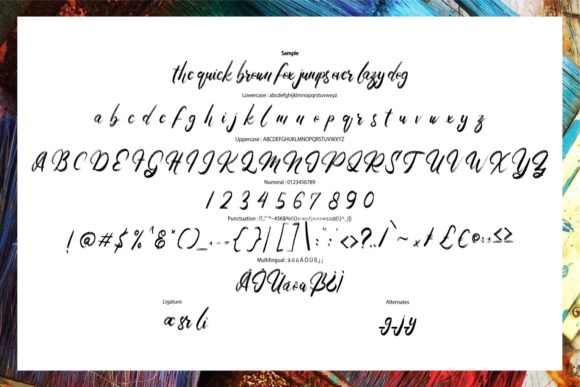 Sample
the quick brown fox jumps over lazy dog
Lowercase : abcdefghijklmnopqrstuvwxyz
a b c d e f g h i j k l m n o p q r s t u v w x y z
Uppercase : ABCDEFGHIJKLMNOPQRSTUVWXYZ
A B C D E F G H I J K L M N O P Q R S T U V W X Y Z
Numeral : 0123456789
1 2 3 4 5 6 7 8 9 0
Punctuation :
! @ # $ % ^ & * ( ) _ - { } | [ ] \ : ; < > ? , . / ` ~
Multilingual :
Ligature Alternates
sr li g j y